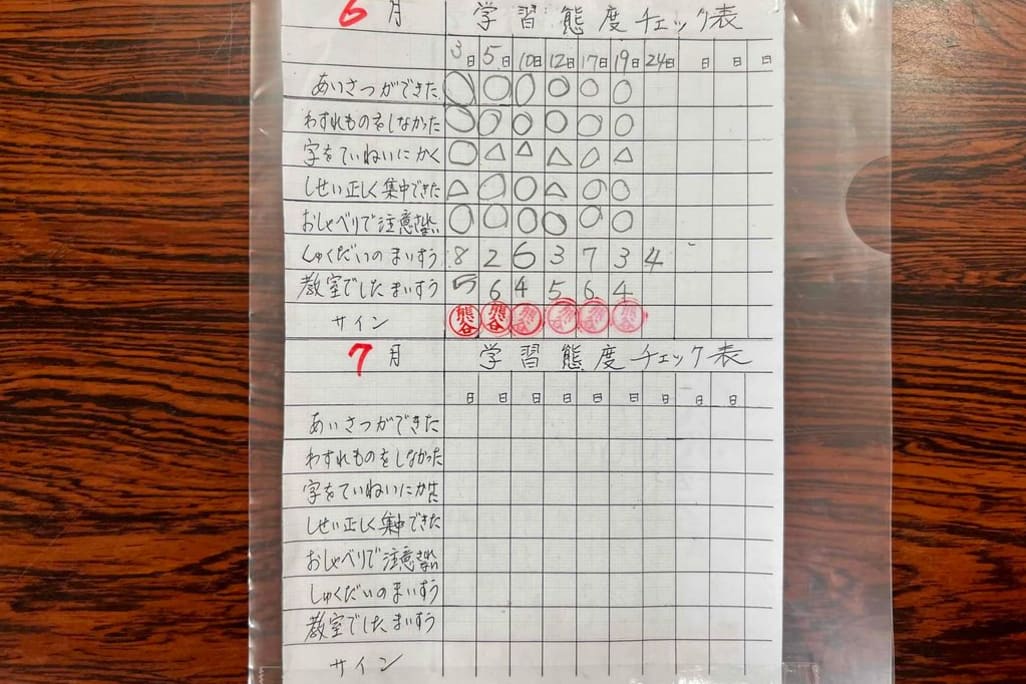 6月 学習態度チェック表
3日 5日 10日 12日 17日 19日 24日 日 日 日
あいさつができた ○ ○ ○ ○ ○ ○
わすれものをしなかった ○ ○ ○ ○ ○ ○
字をていねいにかく ○ △ △ △ ○ △
しせい正しく集中できた △ ○ ○ △ ○ ○
おしゃべりで注意されない ○ ○ ○ ○ ○ ○
しゅくだいのまいすう 8 2 6 3 7 3 4
教室でしたまいすう 5 6 4 5 6 4
サイン 熊谷 熊谷 熊谷 熊谷 熊谷 熊谷
7月 学習態度チェック表
日 日 日 日 日 日 日 日 日
あいさつができた
わすれものをしなかった
字をていねいに
しせい正しく集中できた
おしゃべりで注意されない
しゅくだいのまいすう
教室でしたまいすう
サイン